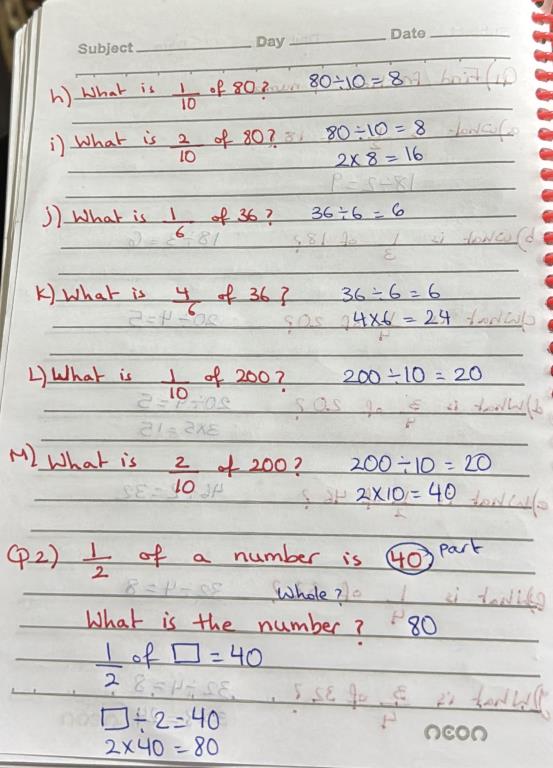 Subject Day Date
h) What is 1/10 of 80? 80÷10=8
i) What is 2/10 of 80? 80÷10=8
2×8=16
j) What is 1/6 of 36? 36÷6=6
K) What is 4/6 of 36? 36÷6=6
4×6=24
L) What is 1/10 of 200? 200÷10=20
M) What is 2/10 of 200? 200÷10=20
2×10=40
Q2) 1/2 of a number is 40 part
Whole?
What is the number? 80
1/2 of □ = 40
□÷2=40
2×40=80
neon